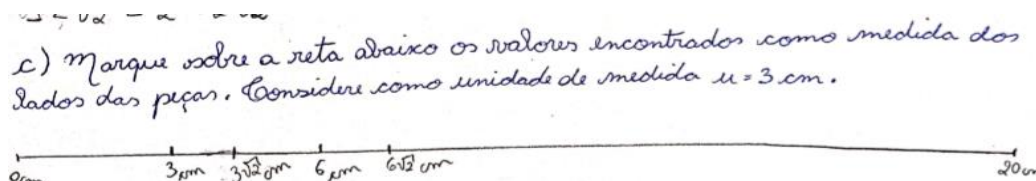 c) Marque sobre a reta abaixo os valores encontrados como medida dos
lados das peças. Considere como unidade de medida u = 3 cm.
3 cm 3√2 cm 6 cm 6√2 cm